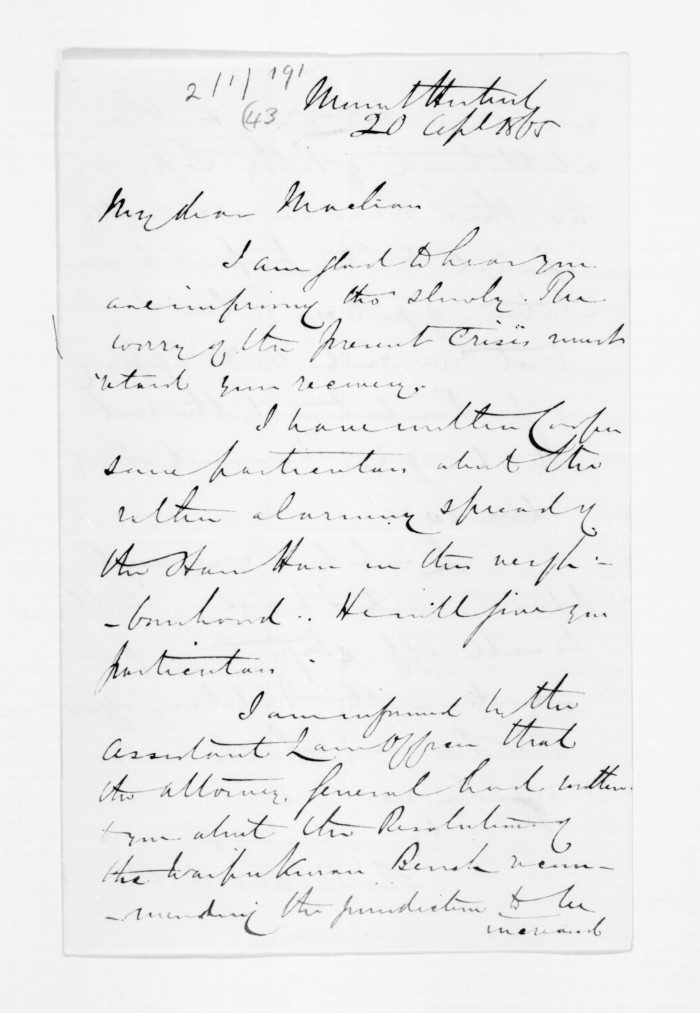 2/1/191
(43
Mount Herbert
20 Apl 1865
My dear Maclean
I am glad to hear you
are improving tho slowly. The
worry of the present Crisis must
retard your recovery.
I have written Cooper
some particulars about the
rather alarming spread of
the Hau Hau in this neigh-
-bourhood.. He will give you
particulars.
I am informed by the
Assistant Law Officer that
the Attorney General had written
to you about the Resolution of
the Waipukurau Bench recom-
-mending the jurisdiction to be
increased